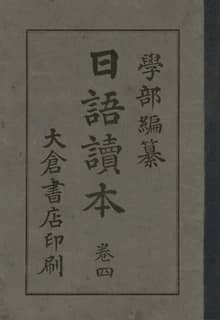 學部編纂
日語讀本
卷四
大倉書店印刷